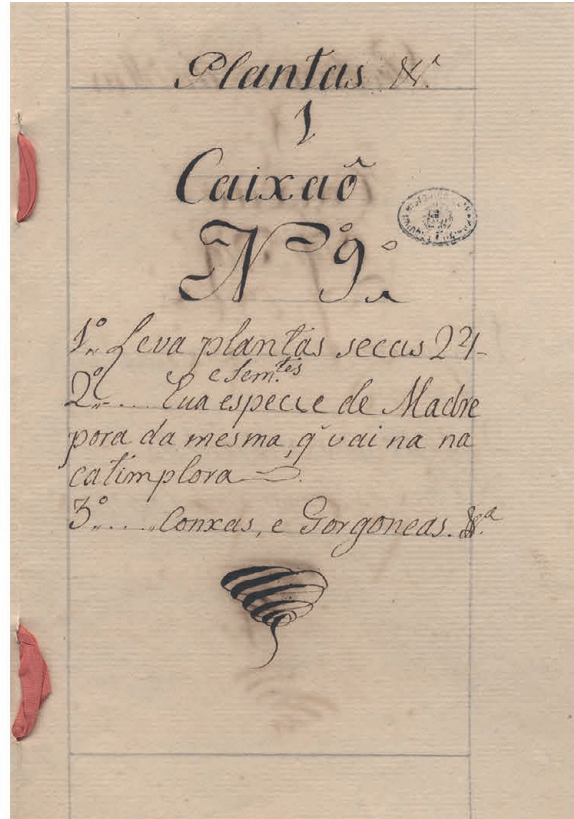 Plantas &ª
1
Caixaõ
Nº 9º
1º Leva plantas secas 24
e Sem.tes
2º .... Eua especie de Madre
pora da mesma, q̃ vai na na
catimplora
3º .... Conxas, e Gorgoneas. &ª